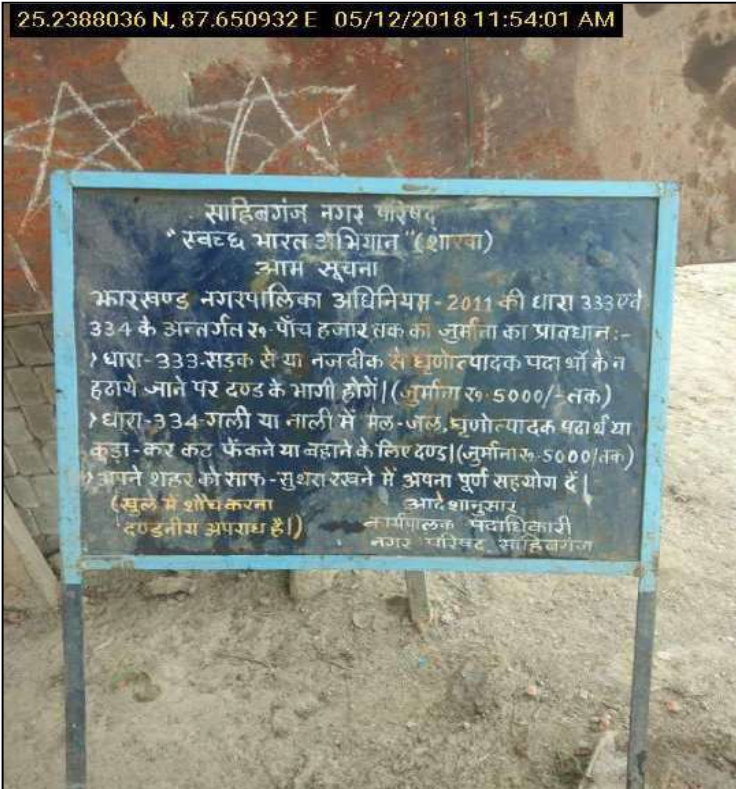 25.2388036 N, 87.650932 E 05/12/2018 11:54:01 AM
साहिबगंज नगर परिषद
"स्वच्छ भारत अभियान" (शाखा)
आम सूचना
झारखण्ड नगरपालिका अधिनियम-2011 की धारा 333 एवं
334 के अन्तर्गत रु॰ पाँच हजार तक का जुर्माना का प्रावधान:-
धारा-333-सड़क से या नजदीक से घृणोत्पादक पदार्थो के न
हटाये जाने पर दण्ड के भागी होगें।(जुर्माना रु॰ 5000/-तक)
धारा-334-गली या नाली में मल-जल, घृणोत्पादक पदार्थ या
कुड़ा-कर कट फेंकने या बहाने के लिए दण्ड।(जुर्माना रु॰ 5000/तक)
अपने शहर को साफ-सुथरा रखने में अपना पूर्ण सहयोग दें।
(खुले में शौच करना
दण्डनीय अपराध है।)
आदेशानुसार
कार्यपालक पदाधिकारी
नगर परिषद साहिबगंज